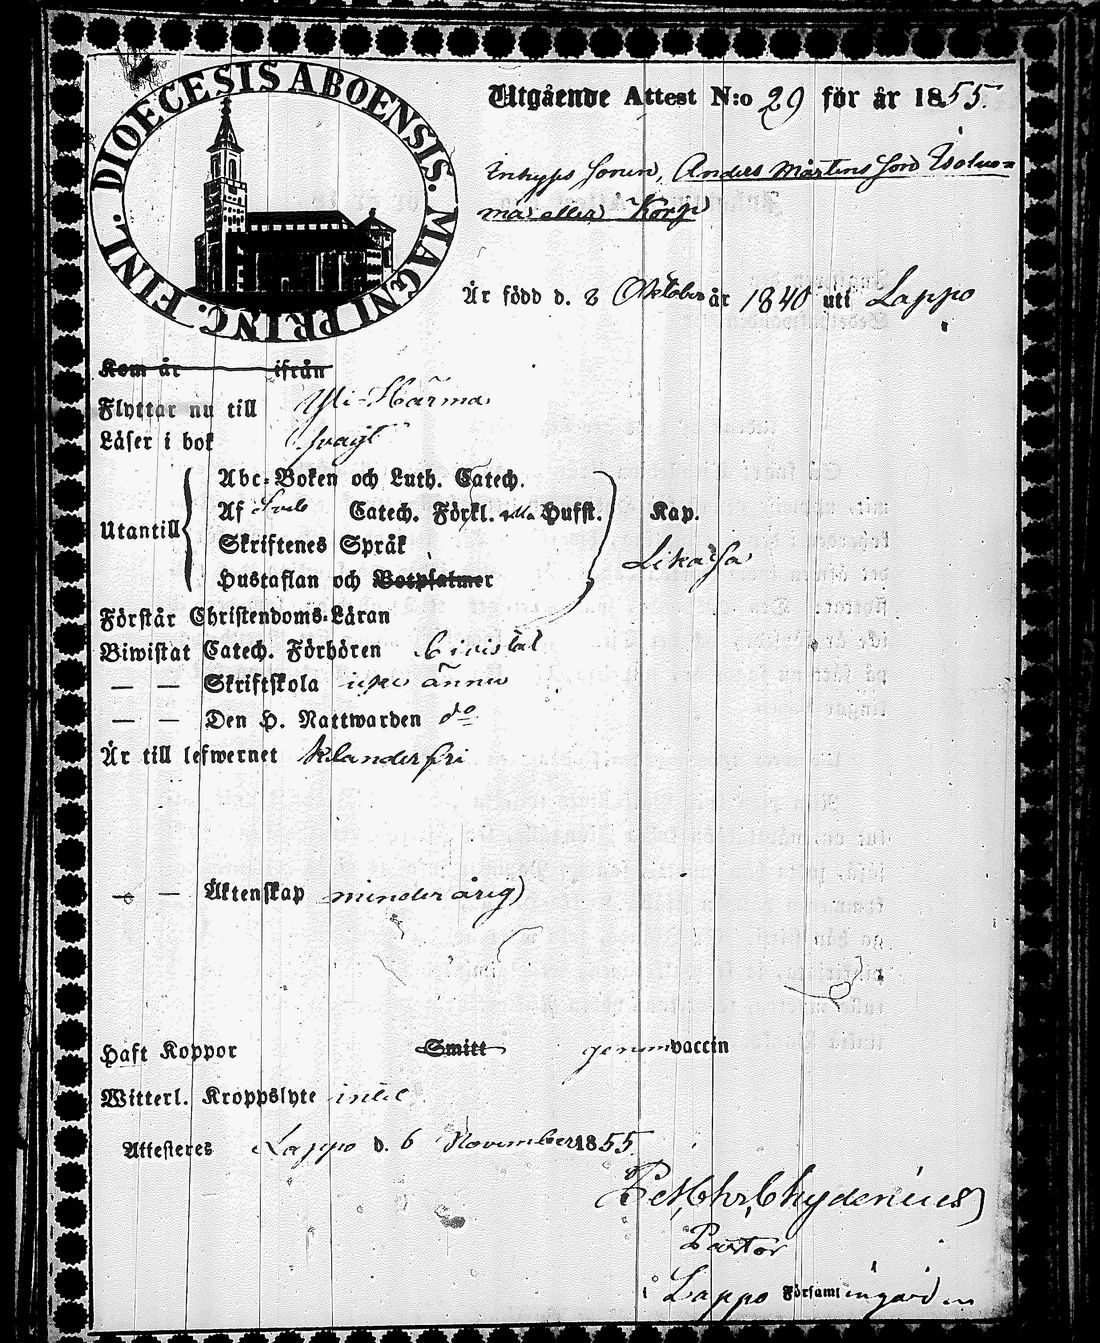 DIOECESIS ABOENSIS. MAGNI PRINC. FINL.
Utgående Attest N:o 29 för år 1855.
Inhyses sonen, Anders Mårtens son Isoluo=
ma eller Korp
Är född d. 8 Oktober år 1840 uti Lappo
Kom år ifrån
Flyttar nu till Yli-Härmä
Läser i bok svagt
Abc-Boken och Luth. Catech.
Af Sveb Catech. Förkl. Hufst. Kap.
Utantill
Skriftenes Språk Likaså
Hustaflan och Botpsalmer
Förstår Christendoms-Läran
Biwistat Catech. Förhören bivistat
— — Skriftskola icke ännu
— — Den H. Nattwarden do
Är till lefwernet klanderfri
— — Äktenskap minderårig
Haft Koppor Smitt genom vaccin
Witterl. Kroppslyte intet
Attesteres Lappo d. 6 November 1855.
Pet. Chr. Chydenius
Pastor
i Lappo Församl